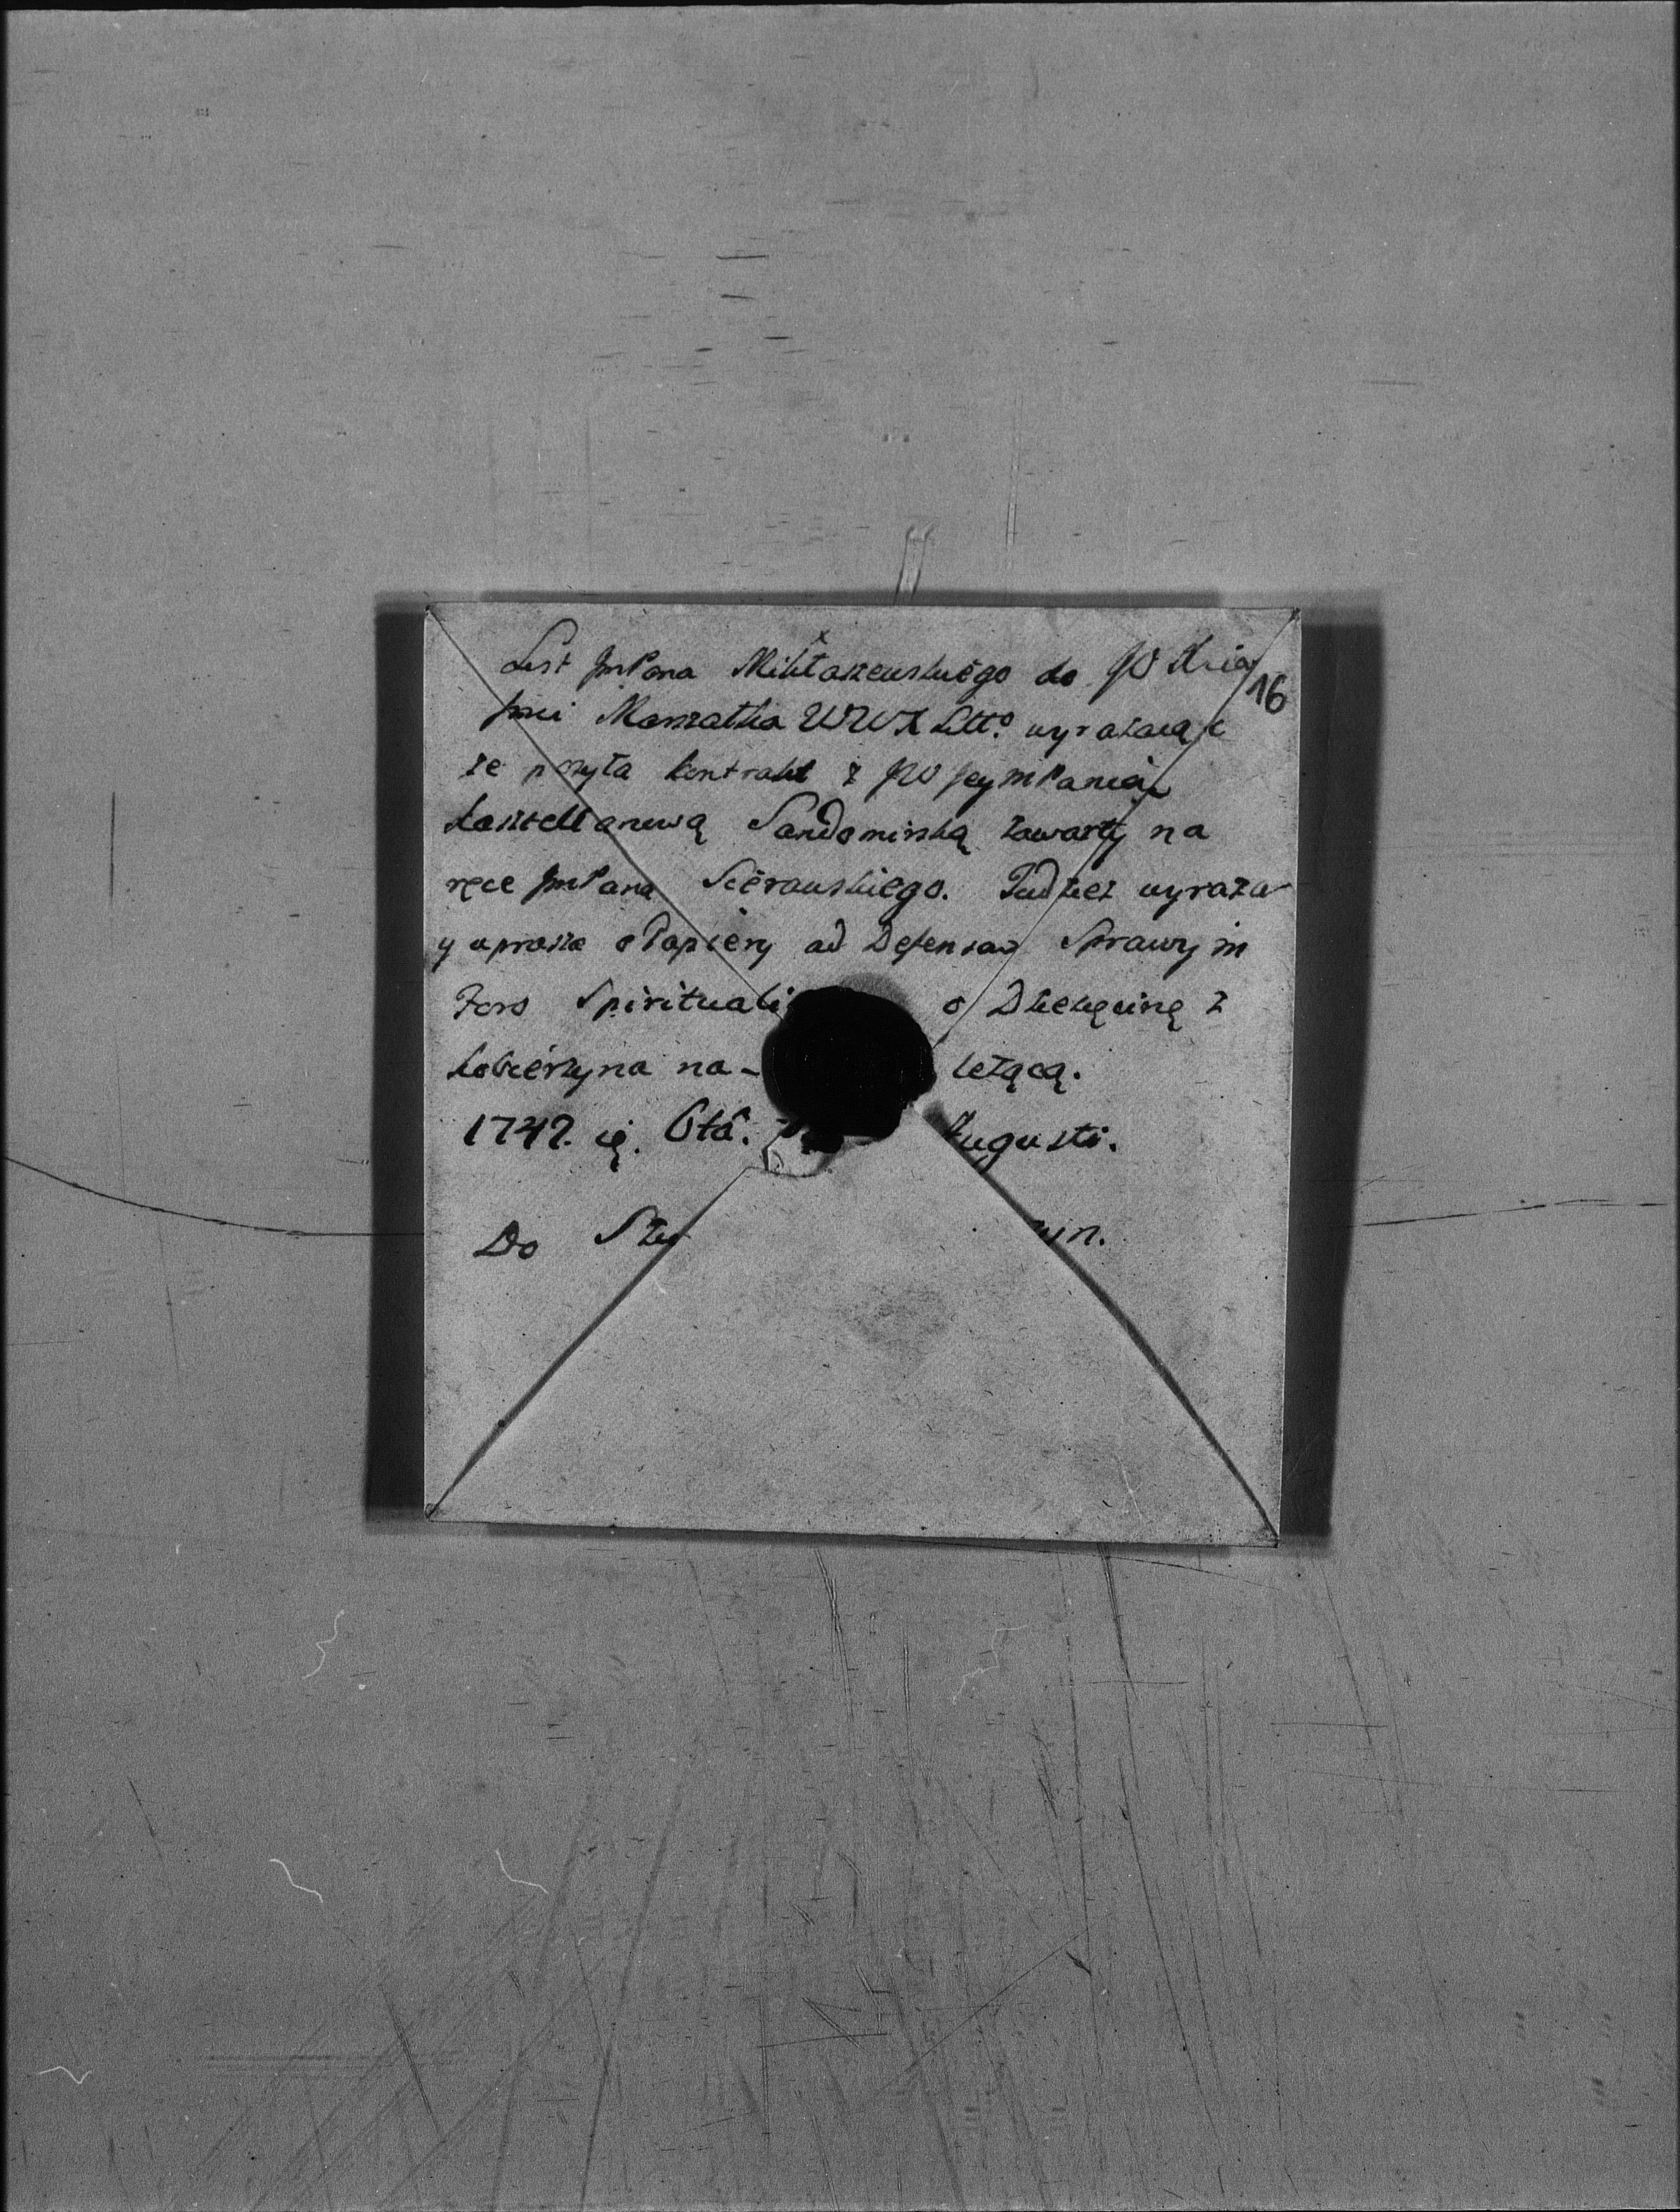 List JmPana Mikłaszewskiego do JO Xcia
16
Jmci Marszałka WWXLitt⁰ wyrażaiąc
że posyła kontrakt z JW JeymPanią
kasztellanową Sandomirską zawarty na
ręce JmPana Sierawskiego. Tudzież wyraża
y uprasza o Papiery ad Defensam Sprawy in
Foro Spirituali o Dziesięcinę z
Kobierzyna na- leżącą.
1742. Augusti.
Do